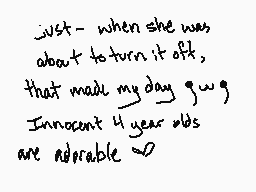 just- when she was
about to turn it off,
that made my day ;w;
Innocent 4 year olds
are adorable